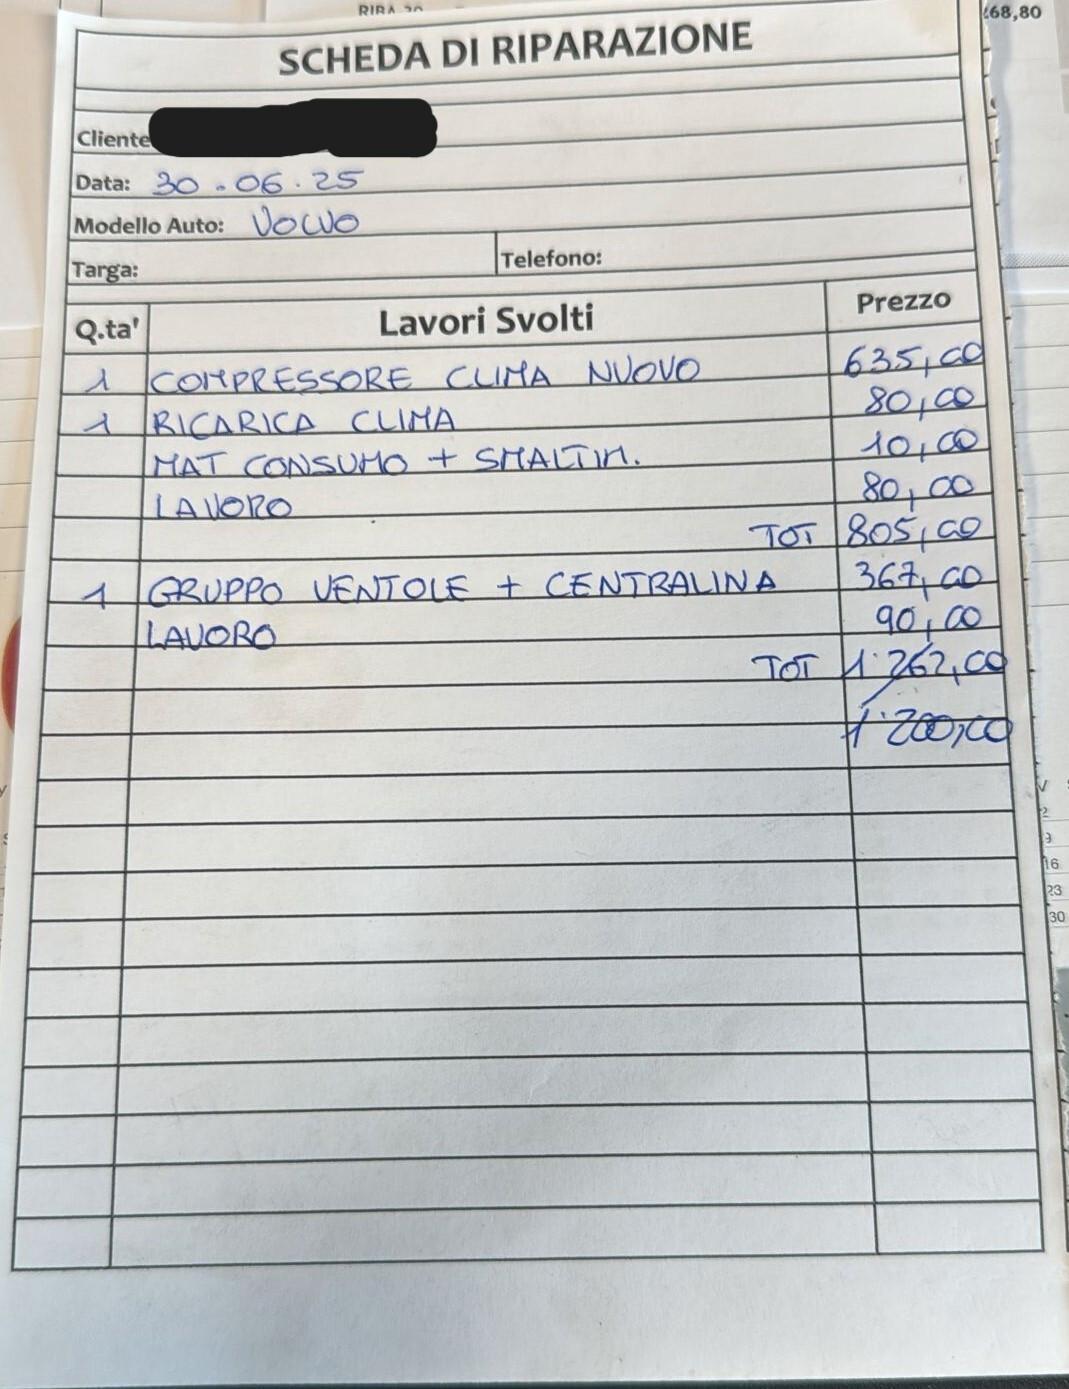 RIBA 30
68,80
SCHEDA DI RIPARAZIONE
Cliente
Data: 30.06.25
Modello Auto: VOLVO
Targa: Telefono:
Q.ta' Lavori Svolti Prezzo
1 COMPRESSORE CLIMA NUOVO 635,00
1 RICARICA CLIMA 80,00
MAT CONSUMO + SMALTIM. 10,00
LAVORO 80,00
TOT 805,00
1 GRUPPO VENTOLE + CENTRALINA 367,00
LAVORO 90,00
TOT 1.262,00
1.200,00
V
2
9
16
23
30